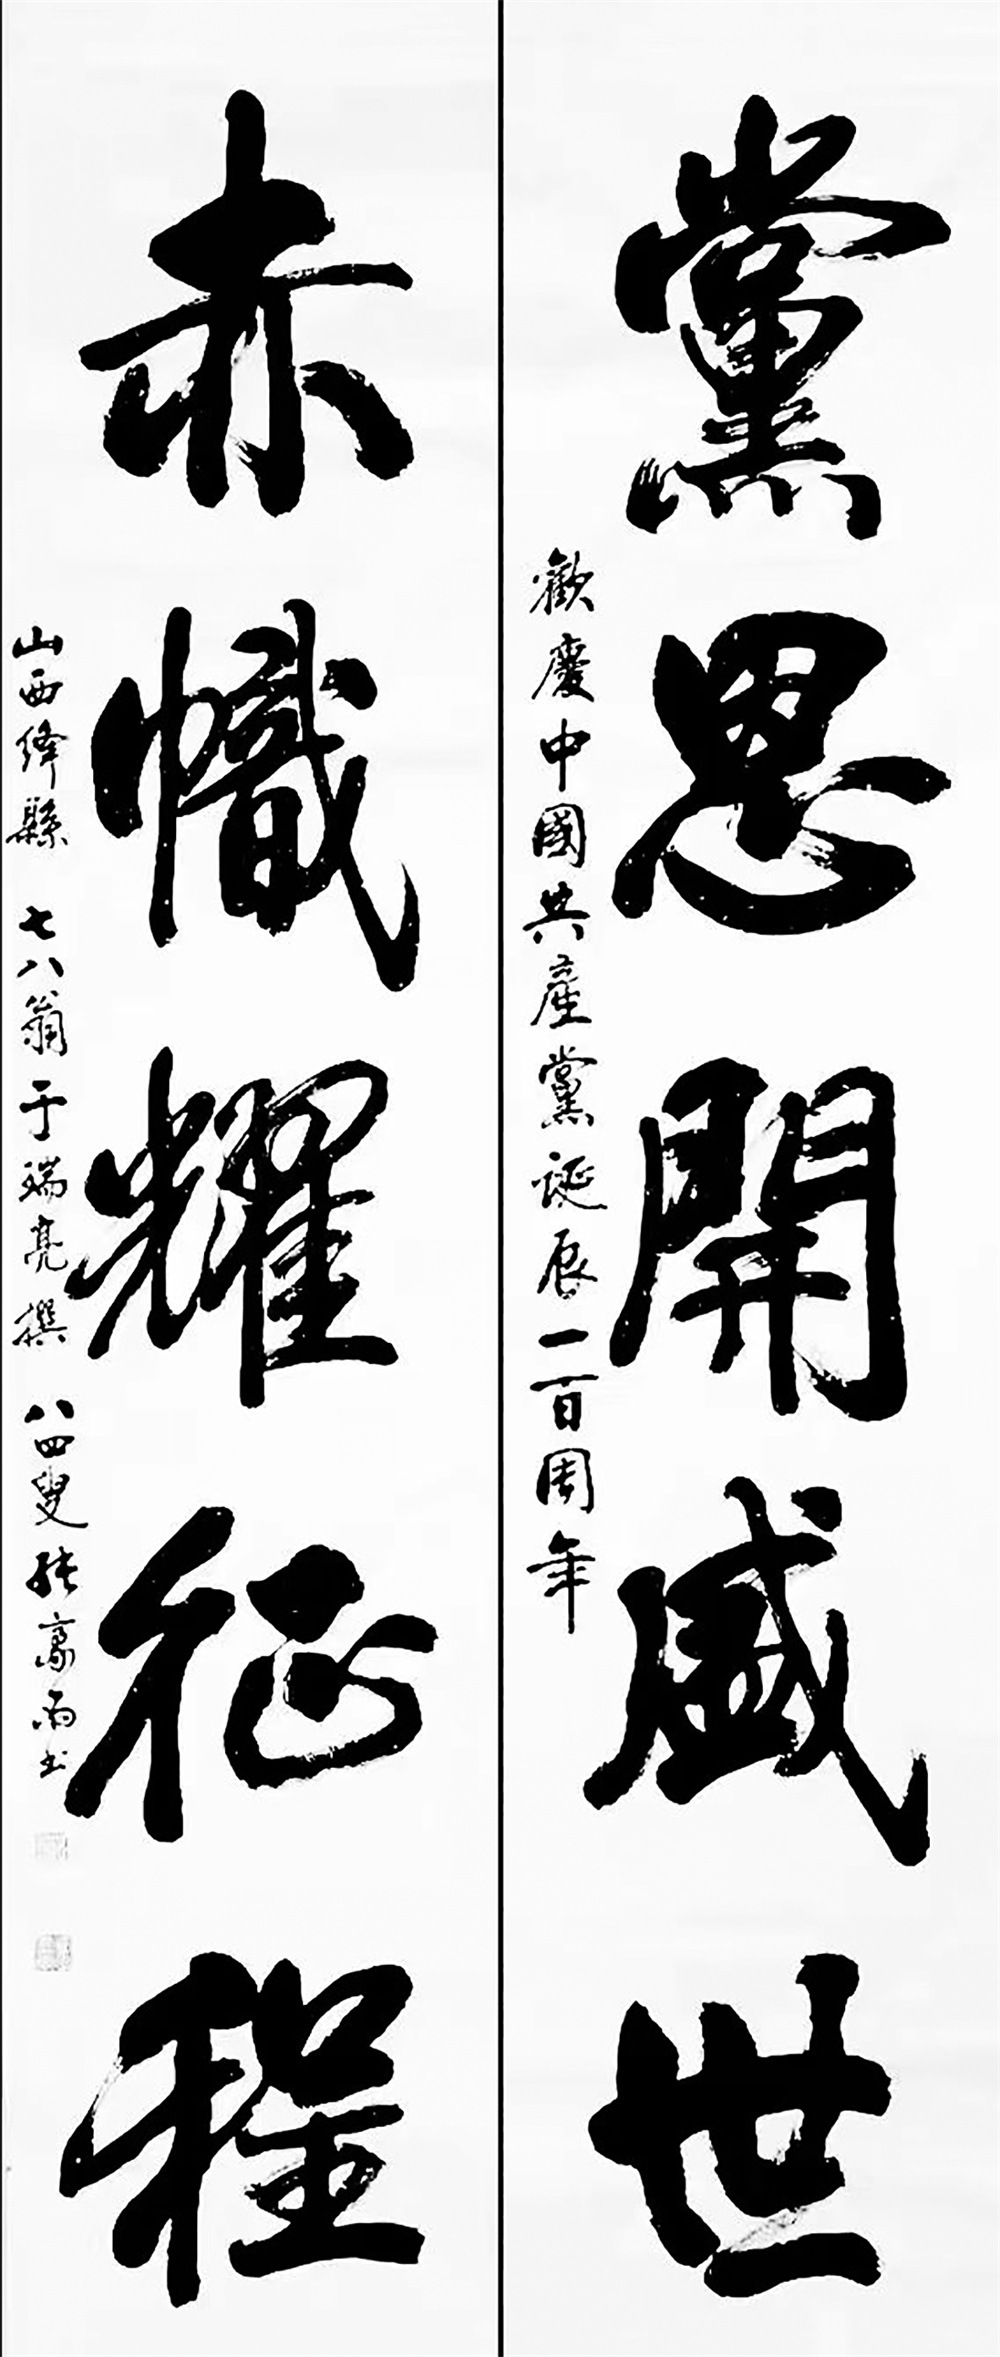 黨恩開盛世
歡慶中國共產黨誕辰一百周年
赤幟耀征程
山西絳縣 七八翁于瑞亮撰 八四叟張高雨书